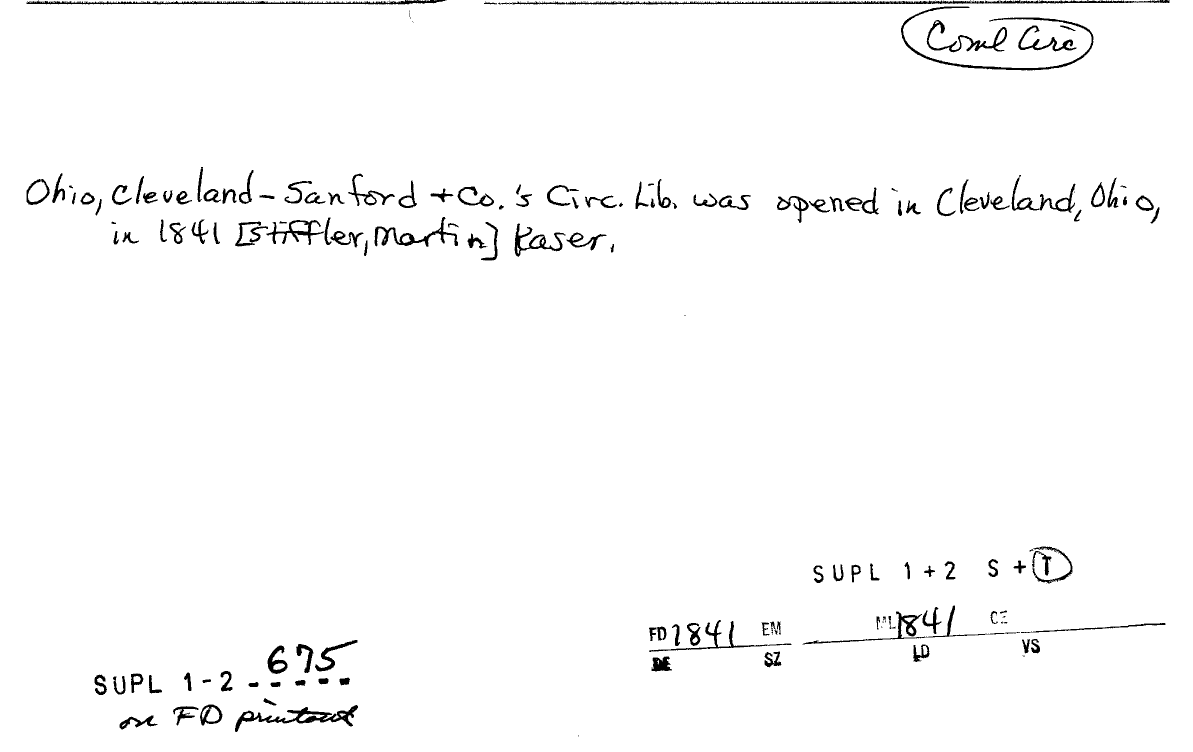 Coml Circ
Ohio, Cleveland - Sanford + Co.'s Circ. Lib. was opened in Cleveland, Ohio,
in 1841 [Stiffler, Martin] Kaser.
SUPL 1 + 2 S + T
FD 1841 EM ML 1841 CE
DE SZ LD VS
SUPL 1 - 2 - 675
on FD printout